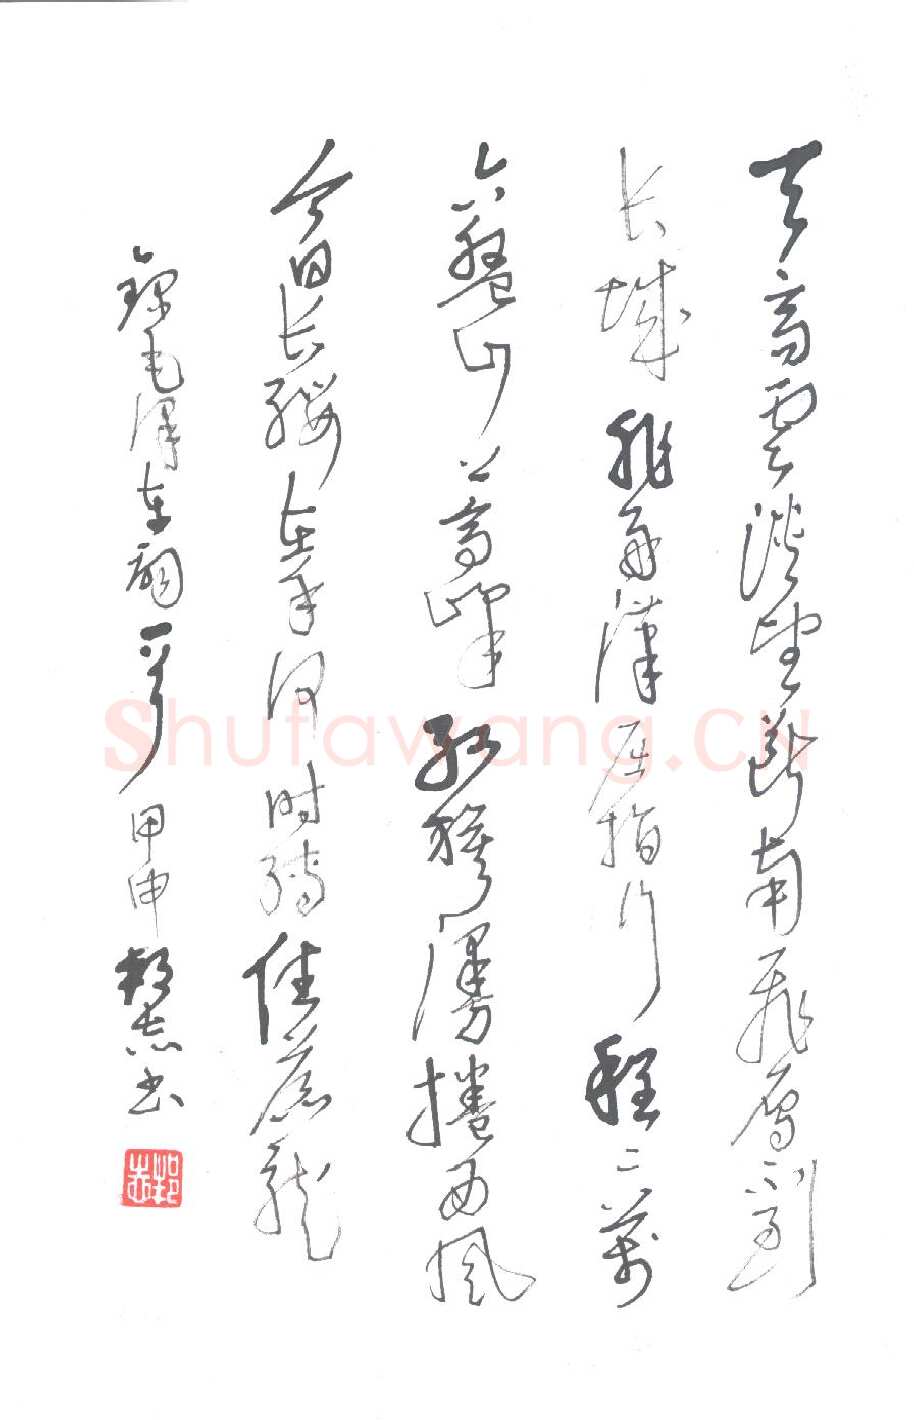 天高雲淡望断南飛雁不到
长城非好漢屈指行程二萬
六盤山上高峰紅旗漫捲西風
今日长缨在手何时缚住蒼龍
錄毛泽东词一首甲申邦志书
Shufawang.CN